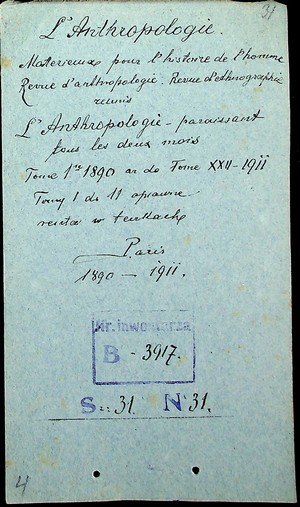 31
L'Anthropologie.
Materieaux pour l'histoire de l'homme
Revue d'anthropologie. Revue d'ethnographie
reunis
L'Anthropologie - paraissant
tous les deux mois
Tome 1er 1890 až do Tome XXII - 1911
Tomy I do 11 oprawne
reszta w teczkach
Paris
1890 — 1911.
Nr. inwentarza
B - 3917.
S: 31. N: 31.
4